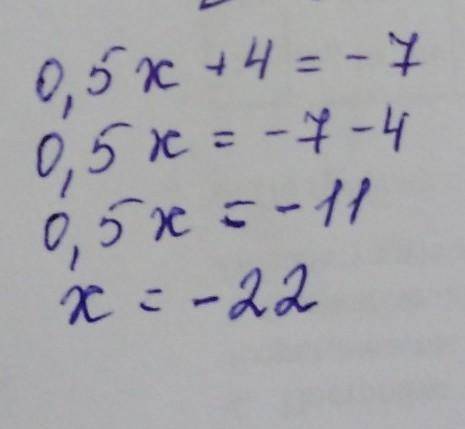 0,5x + 4 = - 7
0,5x = - 7 - 4
0,5x = - 11
x = - 22